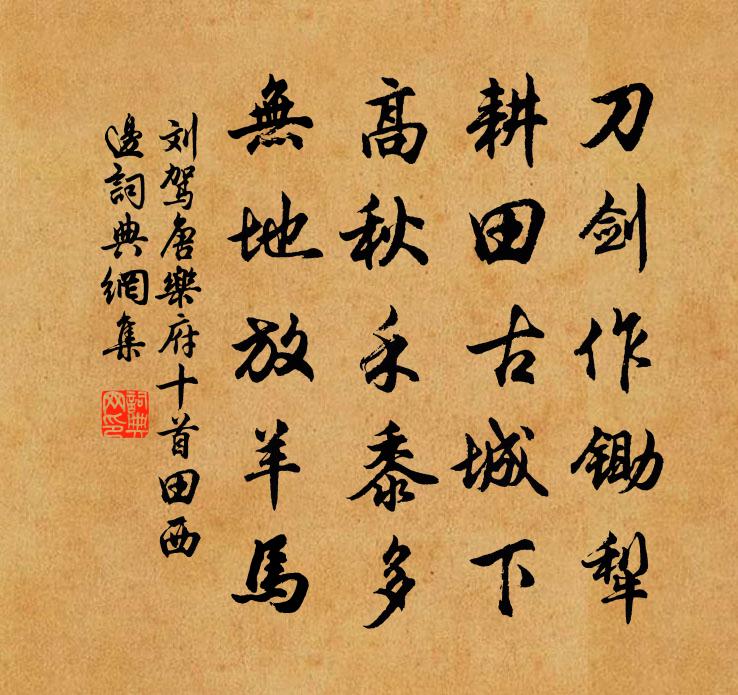 刀剑作锄犁
耕田古城下
高秋禾黍多
無地放羊馬
刘驾唐樂府十首田西
邊詞典網集
詞典网印